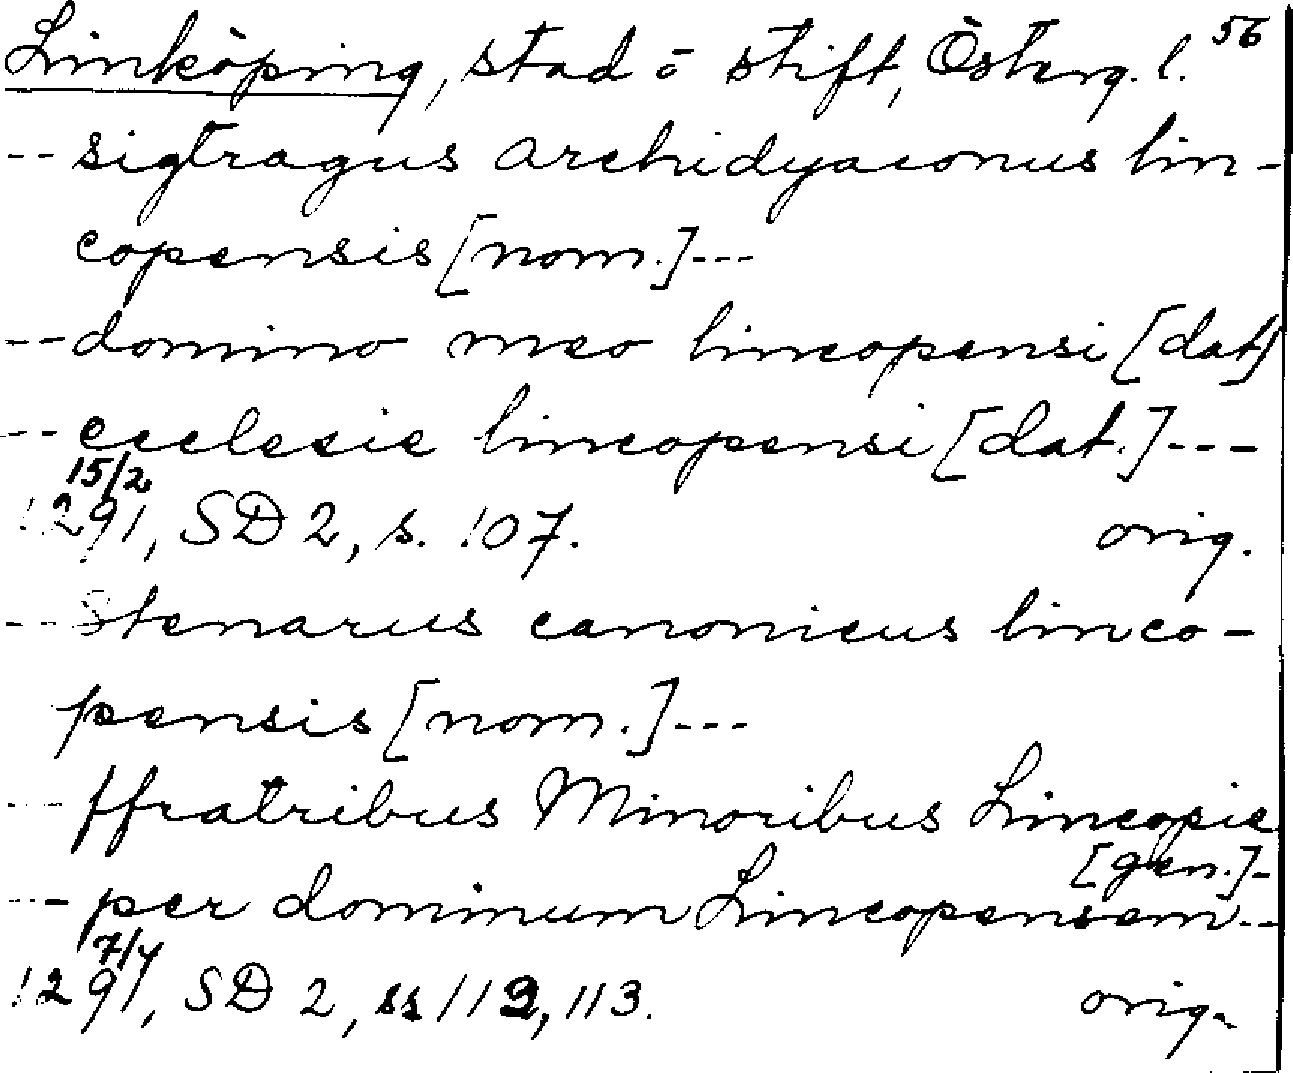 Linköping, stad o stift, Österg. l. 56
-- sigtragus archidyaconus lin-
copensis [nom.] ---
-- domino meo lincopensi [dat]
--- ecclesie lincopensi [dat.] ---
15/2
1291, SD 2, s. 107. orig.
--- Stenarus canonicus linco-
pensis [nom.] ---
--- ffratribus Minoribus Lincopie
[gen.]-
--- per dominum Lincopensem --
7/4
1291, SD 2, ss 112, 113. orig.